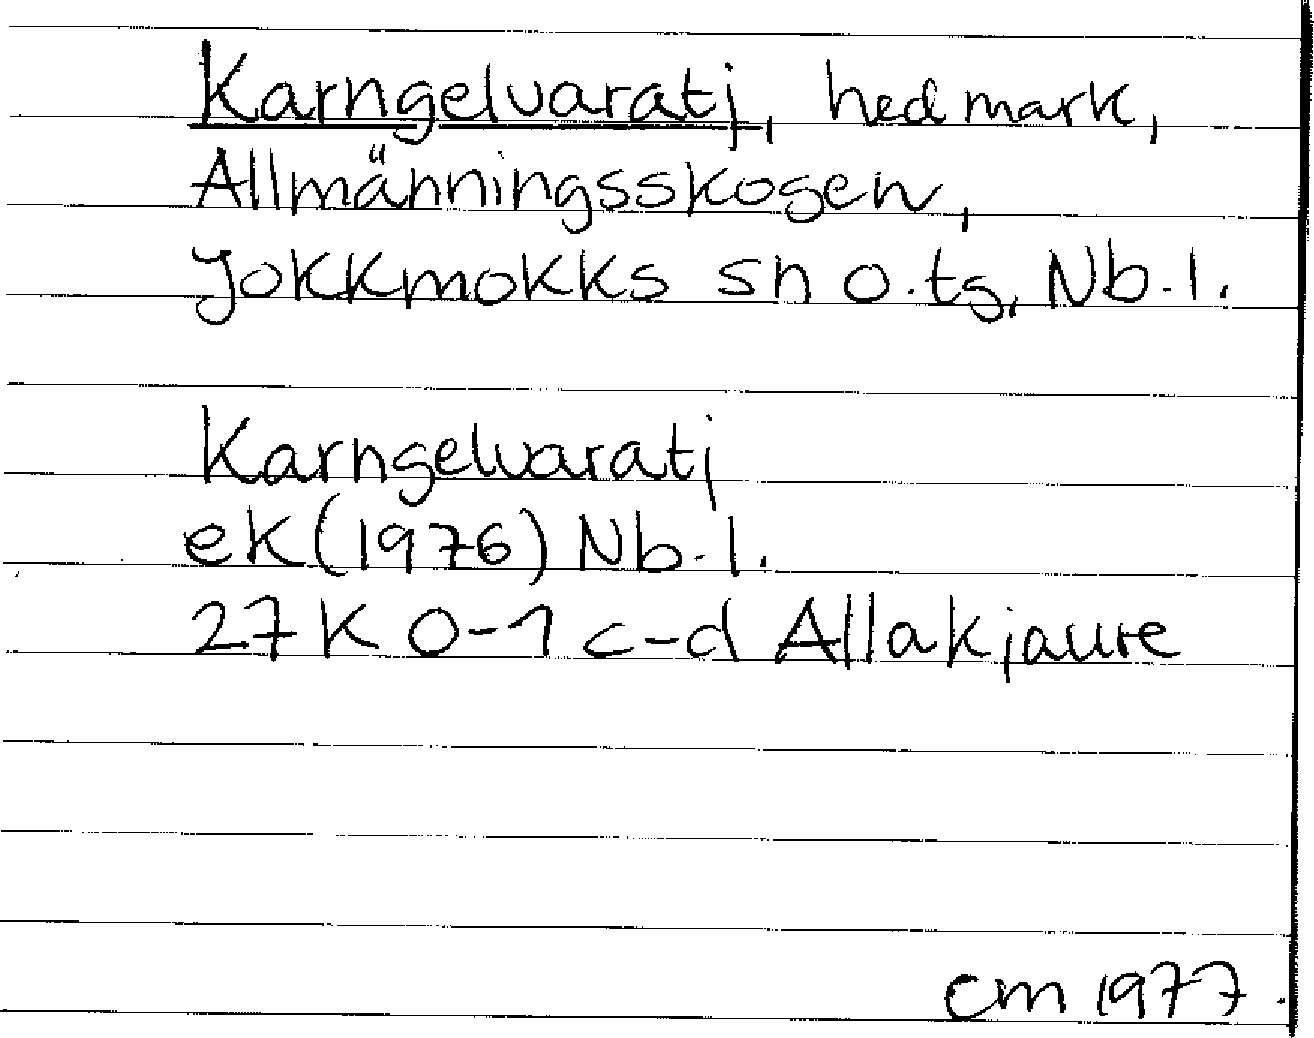 Karngelvaratj, hedmark,
Allmänningsskogen,
Jokkmokks sn o. ts, Nb. l.
Karngelvaratj
ek (1976) Nb. l.
27 K 0-1 c-d Allakjaure
cm 1977.